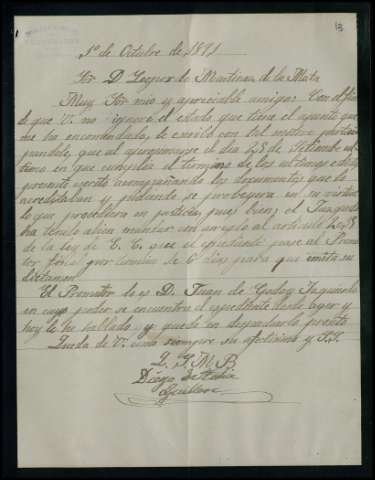 13
1º de Octubre de 1891
Sr D. Gaspar de Martinez de la Mata
Muy Sor mio y apreciable amigo: Con el fin
de que V. no ignore el estado que tiene el apunte que
me ha encomendado, le escribo con del mismo partici
pandole, que al aproximarse el dia 28 de Setiembre ul
timo en que cumplia el termino de los
presenté escrito acompañando los documentos que lo
acreditaban y pidiendo se proveyera en su vista
lo que procediera en justicia, pues bien, el Juzgado
ha tenido á bien mandar con arreglo al articulo
de la ley de E. C. que el espediente pase al Promo
tor fiscal por termino de 6 dias para que emita su
dictamen
El Promotor lo es D. Juan de Godoy Izquierdo
en cuyo poder se encuentra el espediente desde ayer y
hoy le he hablado y quedó en despacharlo pronto
Queda de V. como siempre su afectisimo y S.S.
Q. S. M. B.
Diego de
Guillen